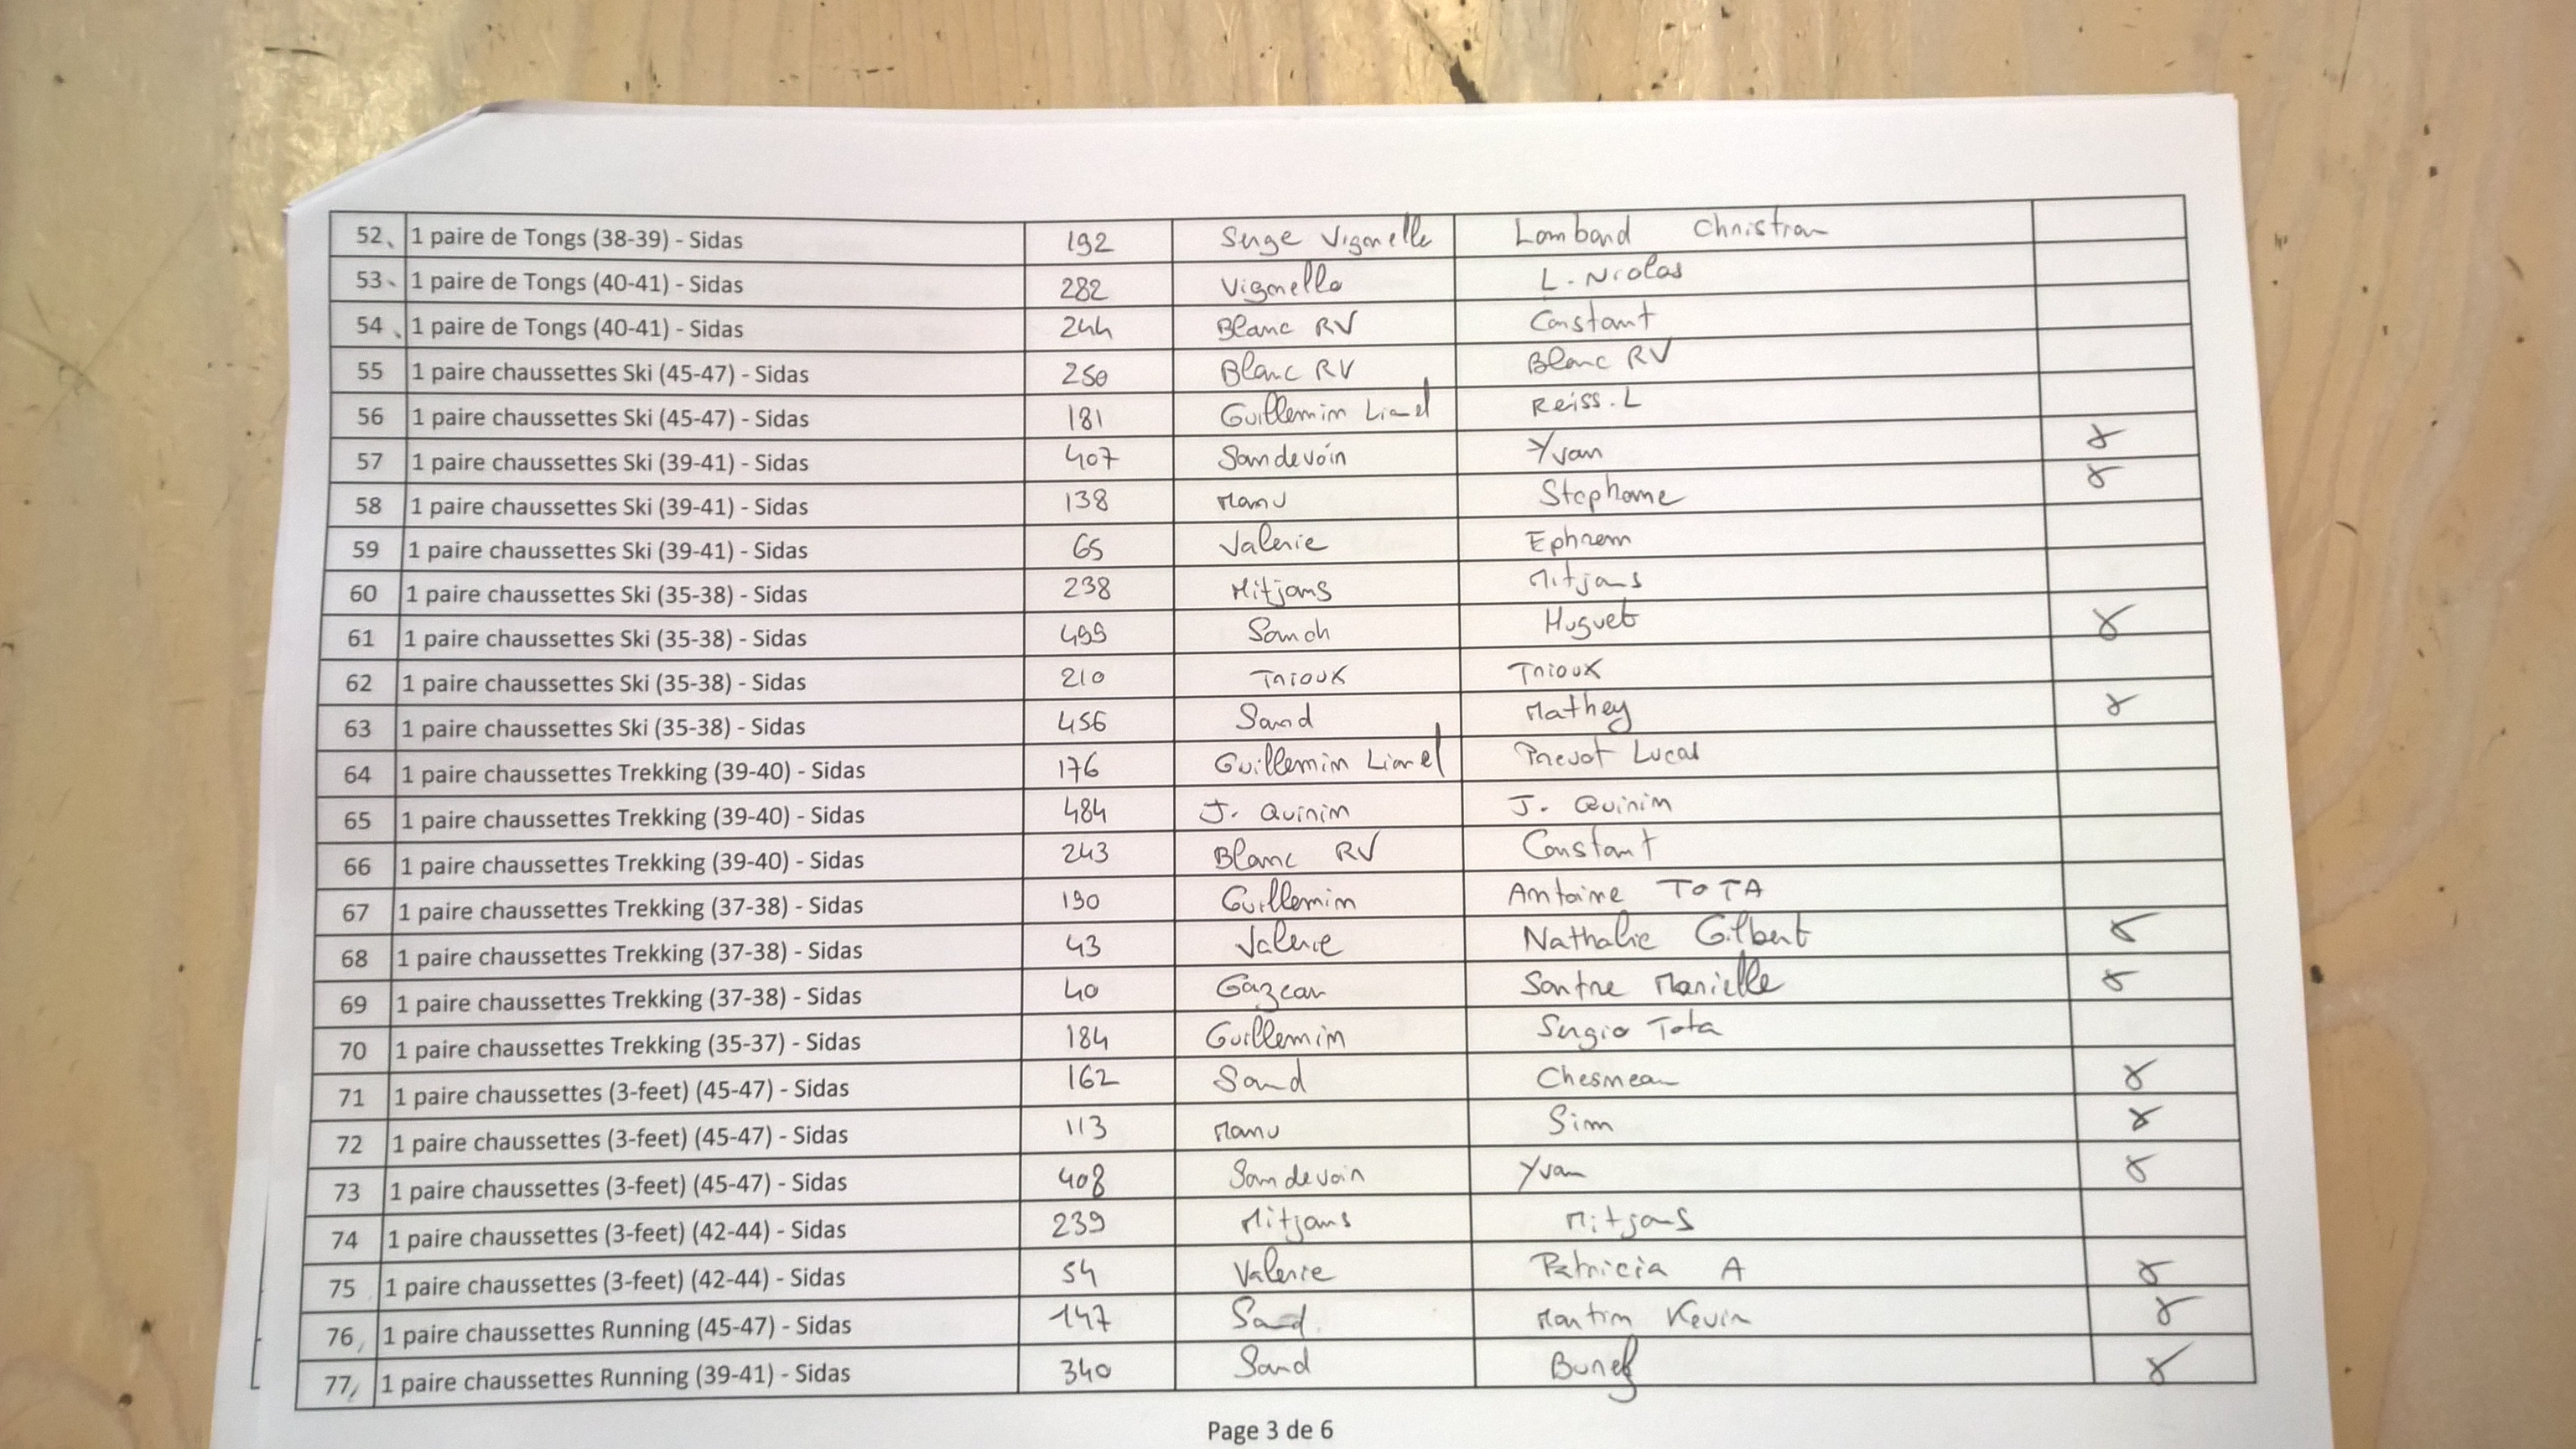 52 1 paire de Tongs (38-39) - Sidas 192 Serge Vignelle Lombard Christian
53 1 paire de Tongs (40-41) - Sidas 282 Vignello L. Nicolas
54 1 paire de Tongs (40-41) - Sidas 244 Blanc RV Constant
55 1 paire chaussettes Ski (45-47) - Sidas 250 Blanc RV Blanc RV
56 1 paire chaussettes Ski (45-47) - Sidas 181 Guillemin Lionel Reiss.L
57 1 paire chaussettes Ski (39-41) - Sidas 407 Sandevoin Yvan
58 1 paire chaussettes Ski (39-41) - Sidas 138 Manu Stephane
59 1 paire chaussettes Ski (39-41) - Sidas 65 Valerie Ephrem
60 1 paire chaussettes Ski (35-38) - Sidas 238 Mitjans Mitjans
61 1 paire chaussettes Ski (35-38) - Sidas 499 Huguet
62 1 paire chaussettes Ski (35-38) - Sidas 210 Trioux Trioux
63 1 paire chaussettes Ski (35-38) - Sidas 456 Sand Mathey
64 1 paire chaussettes Trekking (39-40) - Sidas 176 Guillemin Lionel Prevot Lucas
65 1 paire chaussettes Trekking (39-40) - Sidas 484 J. Quinim J. Quinim
66 1 paire chaussettes Trekking (39-40) - Sidas 243 Blanc RV Constant
67 1 paire chaussettes Trekking (37-38) - Sidas 190 Guillemin Antoine TOTA
68 1 paire chaussettes Trekking (37-38) - Sidas 43 Valerie Nathalie Gilbert
69 1 paire chaussettes Trekking (37-38) - Sidas 40 Gazeau Santre Marielle
70 1 paire chaussettes Trekking (35-37) - Sidas 184 Guillemin Sergio Tota
71 1 paire chaussettes (3-feet) (45-47) - Sidas 162 Sand Chesneau
72 1 paire chaussettes (3-feet) (45-47) - Sidas 113 Manu Sim
73 1 paire chaussettes (3-feet) (45-47) - Sidas 408 Sandevoin Yvan
74 1 paire chaussettes (3-feet) (42-44) - Sidas 239 Mitjans Mitjans
75 1 paire chaussettes (3-feet) (42-44) - Sidas 54 Valerie Patricia A
76 1 paire chaussettes Running (45-47) - Sidas 147 Sand Martin Kevin
77 1 paire chaussettes Running (39-41) - Sidas 340 Sand
Page 3 de 6